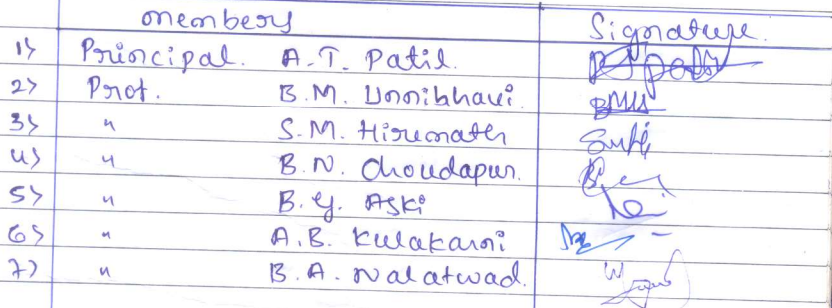 members Signature.
1) Principal. A.T. Patil.
2) Prof. B.M. Unnibhavi. BMU
3) " S.M. Hiremath
4) " B.N. Choudapur.
5) " B.G. Aski
6) " A.B. Kulakarni
7) " B.A. Nalatwad.